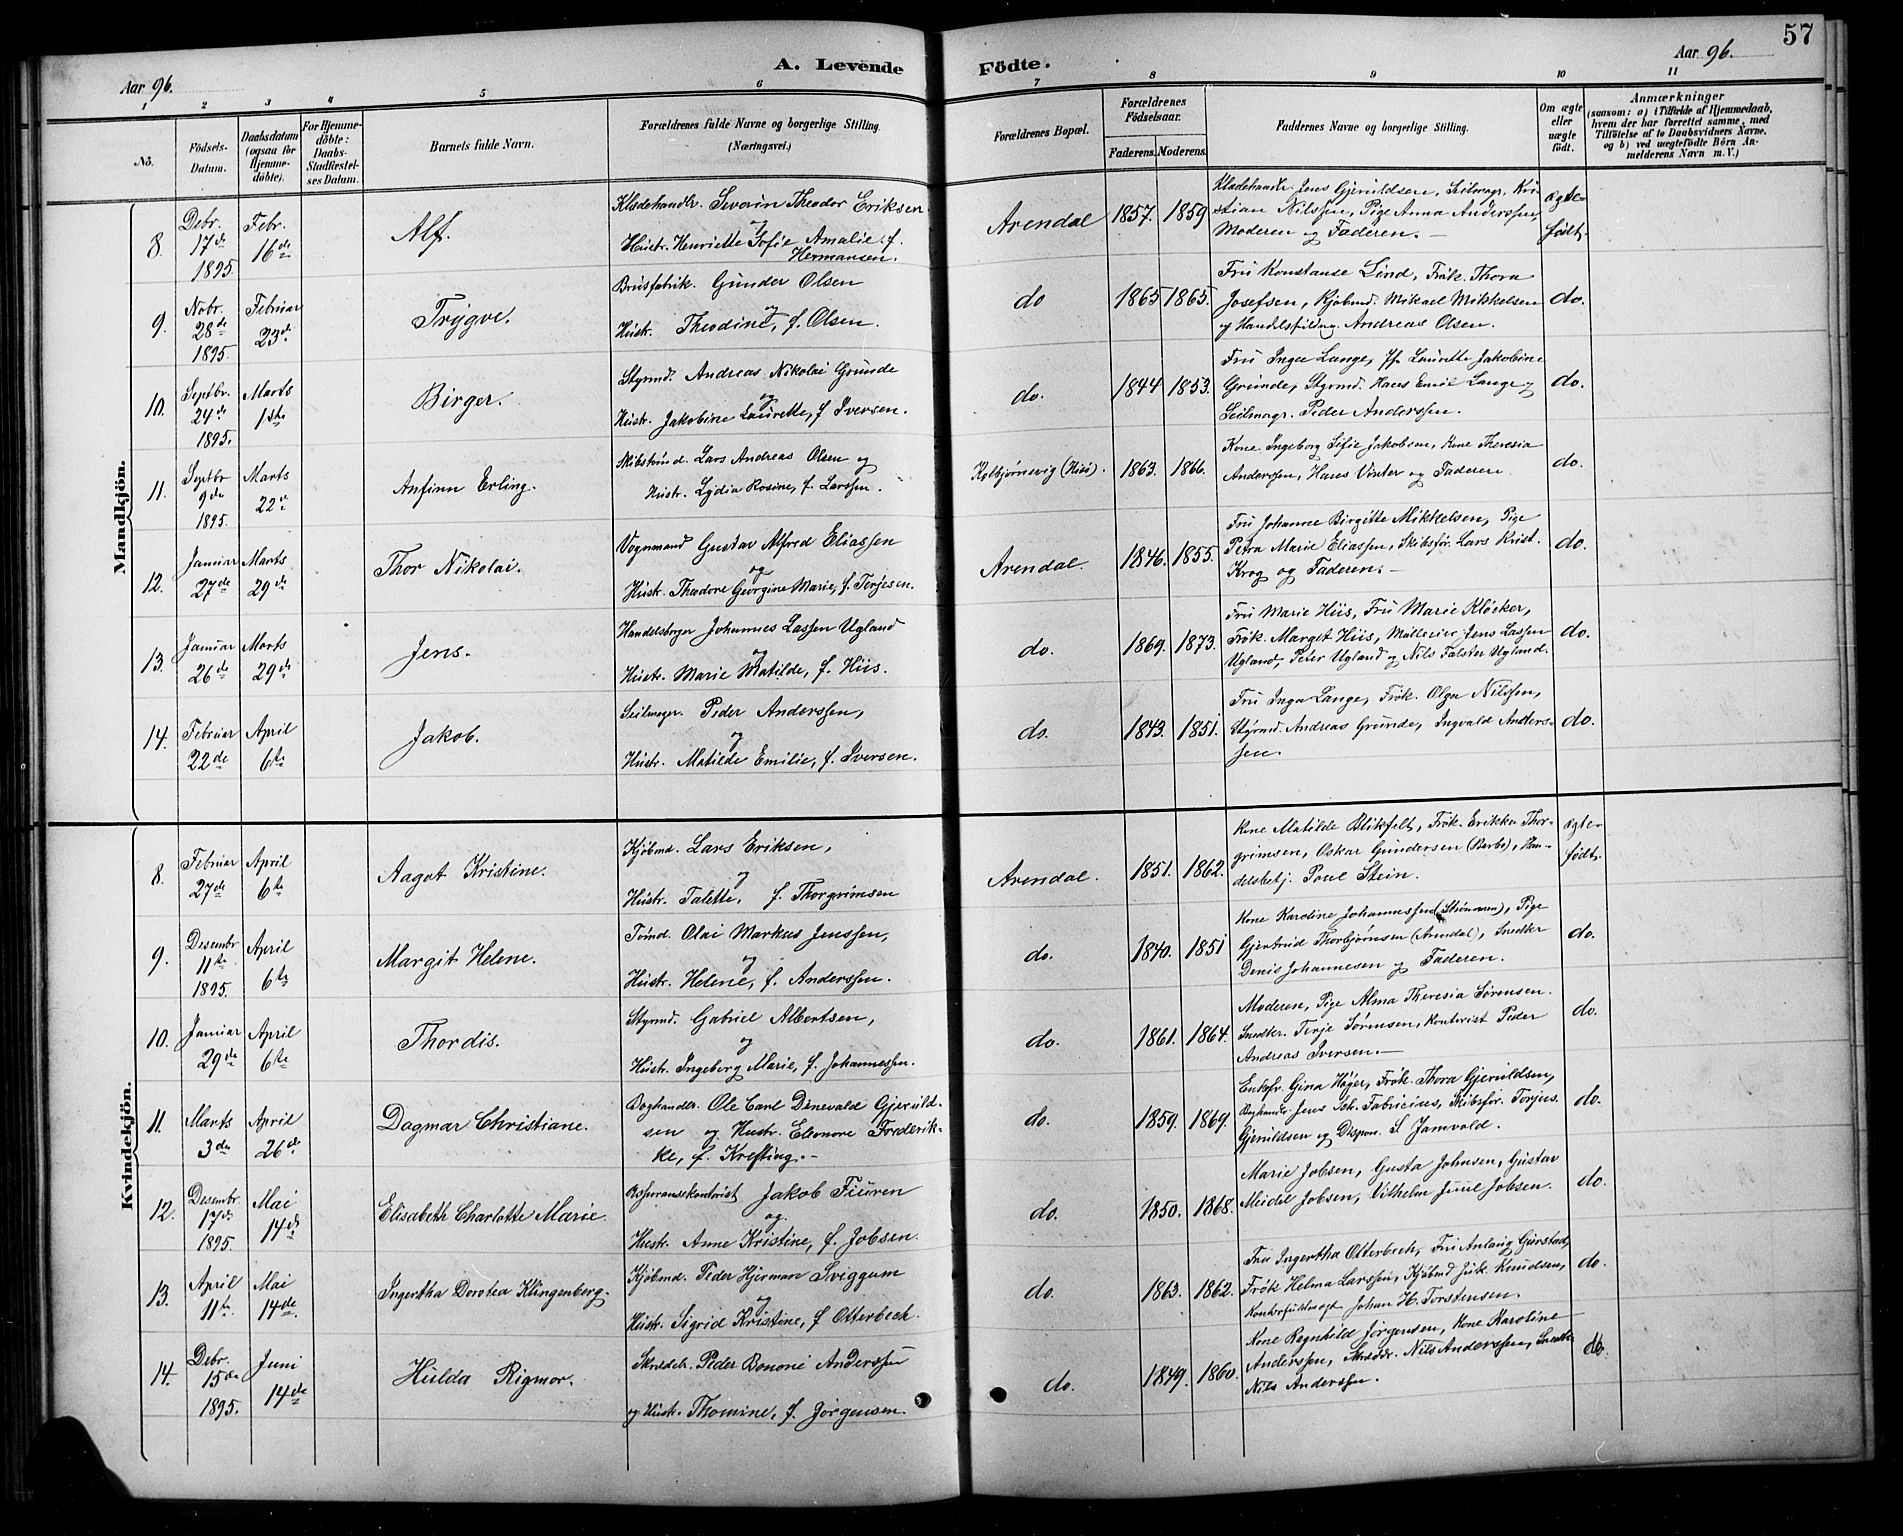 57
Aar 96.
A. Levende
Födte.
Aar 96.
1 2 3 4 5 6 7 8 9 10 11
No.
Födsels-
Datum.
Daabsdatum
(ogsaa for
Hjemme-
döbte).
For Hjemme-
döbte:
Daabs-
Stadfæstel-
ses Datum.
Barnets fulde Navn.
Forældrenes fulde Navne og borgerlige Stilling.
(Næringsvei.)
Forældrenes Bopæl.
Forældrenes
Födselsaar.
Faderens. Moderens.
Faddernes Navne og borgerlige Stilling.
Om ægte
eller
uægte
født.
Anmærkninger
(saasom: a) i Tilfælde af Hjemmedaab,
hvem der har forrettet samme, med
Tilföielse af to Daabsvidners Navne.
og b) ved uægtefödte Börn An-
melderens Navn m. V.)
Mandkjön.
8.
Debr.
17de
1895.
Febr.
16de
Alf.
Klædehandlr. Severin Theodor Eriksen
og
Hustr. Henriette Sofie Amalie f.
Hermansen.
Arendal
1857. 1859
Klædehandlr. Jens Gjeruldsen, Seilmagr. Kri-
stian Nilssen, Pige Anna Anderssen,
Moderen og Faderen.
ægte-
født.
9.
Nobr.
28de
1895.
Februar
23de
Trygve.
Brusfabrik. Gunder Olsen
og
Hustr. Theodine, f. Olsen.
do
1865 1865.
Fru Konstanse Lind, Frøk. Thora
Josefsen, Kjøbmd. Mikael Mikkelsen
og Handelsfuldmg. Andreas Olsen.
do.
10.
Septbr.
24de
1895.
Marts
1ste
Birger.
Styrmd. Andreas Nikolai Grunde
og
Hustr. Jakobine Laurette, f Iversen.
do.
1844 1853.
Fru Inga Lange, Jf. Laurette Jakobine
Grunde, Styrmd. Hans Emil Lange og
Seilmagr. Peder Anderssen.
do.
11.
Septbr
9de
1895.
Marts
22de
Anfinn Erling.
Skibstmd. Lars Andreas Olsen og
Hustr. Lydia Rosine, f. Larssen.
Kolbjørnsvig (Hisø).
1863. 1866.
Kone Ingeborg Sofie Jakobsen, Kone Theresia
Anderssen, Hans Vinter og Faderen.
do.
12.
Januar
27de
Marts
29de
Thor Nikolai.
Vognmand Gustav Alfred Eliassen
og
Hustr. Theodore Georgine Marie, f. Terjesen.
Arendal.
1846. 1855.
Fru Johanne Birgitte Mikkelsen, Pige
Petra Marie Eliassen, Skibsfør. Lars Krist.
Krog og Faderen.
do.
13.
Januar
26de
Marts
29de
Jens.
Handelsborger Johannes Lassen Ugland
og
Hustr. Marie Matilde, f. Hiis.
do.
1869. 1873.
Fru Marie Hiis, Fru Marie Kløcker,
Frøk. Margit Hiis, Møllerier Jens Lassen
Ugland, Peter Ugland og Nils Falster Ugland.
do.
14.
Februar
22de
April
6te
Jakob.
Seilmager. Peder Anderssen,
og
Hustr. Matilde Emilie, f. Iversen.
do.
1843. 1851.
Fru Inga Lange, Frøk. Olga Nilssen,
Styrmd. Andreas Grunde, Ingvald Anders-
sen.
do.
Kvindekjön.
8.
Februar
27de
April
6te
Aagot Kristine.
Kjøbmd. Lars Eriksen,
og
Hustr. Talette, f. Thorgrimsen
Arendal.
1851. 1862.
Kone Matilde Blikfelt, Frøk. Erikka Thor-
grimsen, Oskar Gundersen (Narbo), Han-
delsbetj. Poul Stein.
ægte-
født.
9.
Desembr
11te
1895.
April
6te
Margit Helene.
Tømd. Olai Markus Jenssen,
og
Hustr. Helene, f. Anderssen.
do.
1840. 1851
Kone Karoline Johannessen (Strømmen), Pige
Gjertrud Thorbjørnsen (Arendal), Snedker
Denis Johannesen og Faderen.
do.
10.
Januar
29de
April
6te
Thordis.
Styrmd. Gabriel Albertsen,
og
Hustr. Ingeborg Marie, f. Johannessen.
do.
1861. 1864.
Moderen, Pige Alma Theresia Sørensen.
Snedker. Terje Sørensen, Kontorist Peder
Andreas Iversen.
do.
11.
Marts
3de
April
26de
Dagmar Christiane.
Boghandlr. Ole Carl Dinevald Gjeruld-
sen og Hustr. Eleonore Frederik-
ke, f. Krefting.
do.
1859. 1869.
Enkefr. Gina Høyer, Frøk. Thora Gjeruldsen,
Boghandlr. Jens Sch. Fabricius, Skibsfør. Torjus
Gjeruldsen og Dispon. S Jamvold.
do.
12.
Desembr.
17de
1895.
Mai
14de
Elisabeth Charlotte Marie.
Assuransekontorist Jakob Fiuren
og
Hustr. Anne Kristine, f. Jobsen.
do.
1850. 1868.
Marie Jobsen, Gusta Johnsen, Gustav
Meidel Jobsen, Vilhelm Juul Jobsen.
do.
13.
April
11te
Mai
14de
Ingertha Dorotea Klingenberg.
Kjøbmd. Peder Hjerman Sviggum
og
Hustr. Sigrid Kristine, f Otterbech.
do.
1863. 1862.
Fru Ingertha Otterbech, Fru Anlaug Gjerstad,
Frøk Helma Larssen, Kjøbmd Juk. Knudsen,
Kontorfuldmægt Johan H. Torstensen.
do.
14.
Debr.
15de
1895.
Juni
14de
Hulda Rigmor.
Skrædr. Peder Bononi Anderssen
og Hustr. Thomine, f. Jørgensen.
do.
1849. 1860.
Kone Regnhild Jørgensen, Kone Karoline
Anderssen, Skrædr. Nils Anderssen, Snedker
Nils Anderssen.
do.